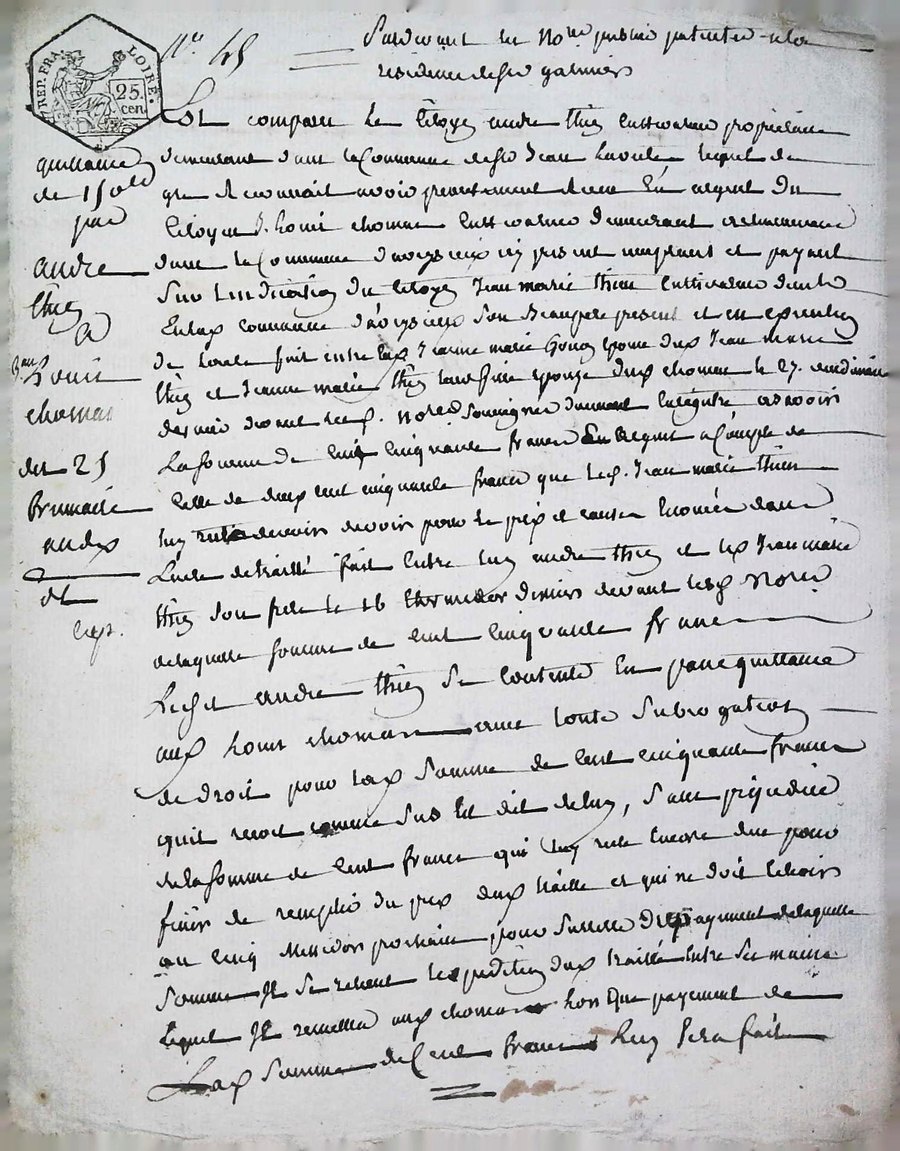 REP. FRA.
LOIRE.
25.
cen.
N.º 48
Pardevant le Nore public patenté
residence de St galmier
Est comparu Le Citoyen andre thien Cultivateur propriétaire
demeurant dans la Commune de St Jean lequel de
gre Reconnait avoir presentement Receu En argent du
Citoyen J. Louis chomat Cultivateur demeurant
dans la Commune d'aveyzieux icy present acceptant et payant
Sur Lindication du Citoyen Jean marie thien Cultivateur
commune d'aveyzieux Son Beaupere present et en Execution
de fait entre Jeanne marie epouse dud Jean marie
thien et Jeanne marie thien epouse dud chomat le 27. vendemiaire
dernier devant led. Nore Soussigné
La somme de Cent Cinquante francs En argent a Compte de
Celle de deux cent cinquante francs que led. Jean marie thien
luy reste devoir pour le prix et causes Enoncées dans
L'acte de traitté fait Entre luy andre thien et led Jean marie
thien Son frere le 16 thermidor dernier devant led Nore
de laquelle somme de Cent Cinquante francs
Ledit andre thien Se Contente En passe quittance
aud Louis chomat avec toute Subrogation
de droit pour lad Somme de Cent cinquante francs
quil recoit comme Sus Est dit de luy, Sans préjudice
de la Somme de Cent francs qui luy reste Encore due pour
finir de remplir du prix dud traitté et qui ne doit Echoir
au cinq Messidor prochain pour Surette du payement de laquelle
Somme Il Se retient Lexpedition dud traitté Entre Ses mains
lequel Il remettra aud chomat Lors que payement de
Lad Somme de Cent francs Luy Sera fait
quittance
de 150 ld
par
andre
thien
a
Jean
Louis
chomat
du 25
Brumaire
an dix
et
exp.